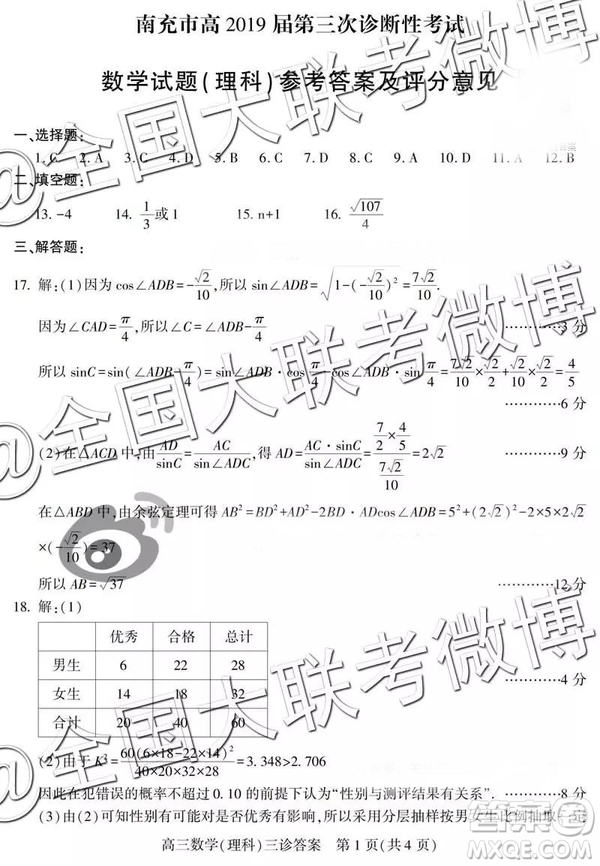 南充市高 2019 届第三次诊断性考试
数学试题(理科)参考答案及评分意见
一、选择题:
1. C 2. A 3. C 4. D 5. D 6. A 7. B 8. B 9. C 10. D 11. A 12. B
二、填空题:
13. -4 14. 1/3或1 15. n+1 16. √107/4
三、解答题:
17. 解:(1)因为 cos∠ADB=-√2/10,所以 sin∠ADB=√(1-(-√2/10)²)=7√2/10.
因为∠CAD=π/4,所以∠C=∠ADB-π/4 ············3 分
所以 sinC=sin(∠ADB-π/4)=sin∠ADB·cosπ/4-cos∠ADB·sinπ/4=7√2/10×√2/2+√2/10×√2/2=4/5
············6 分
(2)在△ACD 中,由AD/sinC=AC/sin∠ADC,得 AD=AC·sinC/sin∠ADC=(7/2×4/5)/(7√2/10)=2√2 ············9 分
在△ABD 中,由余弦定理可得 AB²=BD²+AD²-2BD·ADcos∠ADB=5²+(2√2)²-2×5×2√2
×(-√2/10)=37
所以 AB=√37 ············12 分
18. 解:(1)
优秀 合格 总计
男生 6 22 28
女生 14 18 32 ············4 分
合计 20 40 60
(2)由于 K²=60(6×18-22×14)²/40×20×32×28=3.348>2.706
因此在犯错误的概率不超过 0.10 的前提下认为“性别与测评结果有关系”. ············8 分
(3)由(2)可知性别有可能对是否优秀有影响,所以采用分层抽样按男女生比例抽取一定
高三数学(理科)三诊答案 第 1 页(共 4 页)
@全国大联考微博
@全国大联考微博
@全国大联考微博